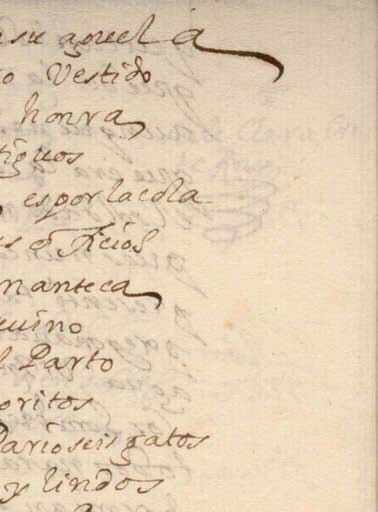 su aguela
o Vestido
honra
tiguos
es por la cola
es oficios
manteca
uino
l Parto
oritos
Pario seis gatos
y lindos